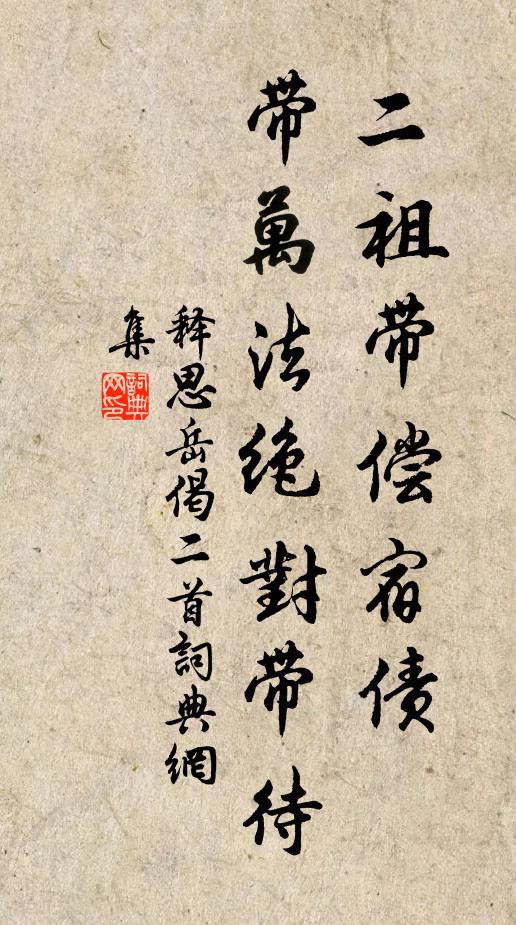 二祖带偿宿债
带萬法绝對带待
释思岳偈二首詞典網
集
詞典网印